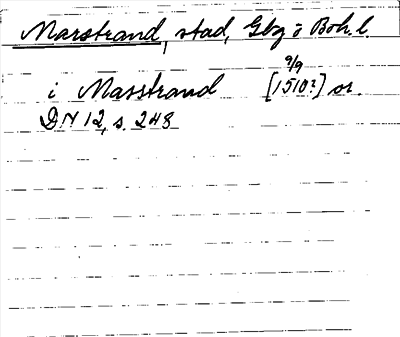 Marstrand, stad, Gbg o Boh. l.
9/9
i Masstrand [1510?] or.
DN 12, s. 248